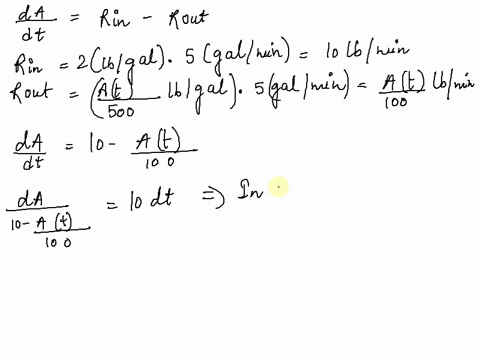 dA/dt = Rin - Rout
Rin = 2(lb/gal). 5(gal/min) = 10 lb/min
Rout = (A(t)/500 lb/gal). 5(gal/min) = A(t)/100 lb/min
dA/dt = 10 - A(t)/100
dA/(10 - A(t)/100) = 10 dt ⇒ In